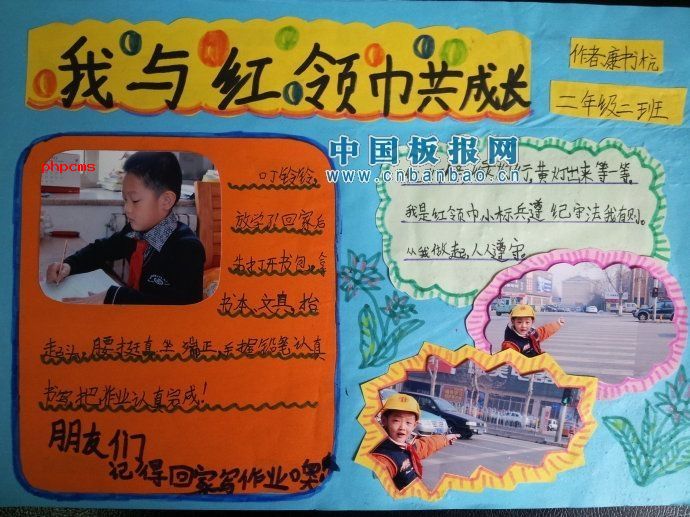 我与红领巾共成长
作者:康书杭
二年级二班
中国板报网
www.cnbanbao.cn
phpcms
叮铃铃,
放学了,回家后
先打开书包,拿
书本,文具,抬
起头,腰挺直,坐端正,手握铅笔认真
书写,把作业认真完成!
朋友们
记得回家写作业噢!
行,黄灯出来等一等。
我是红领巾小标兵,遵纪守法我有则。
从我做起,人人遵守。